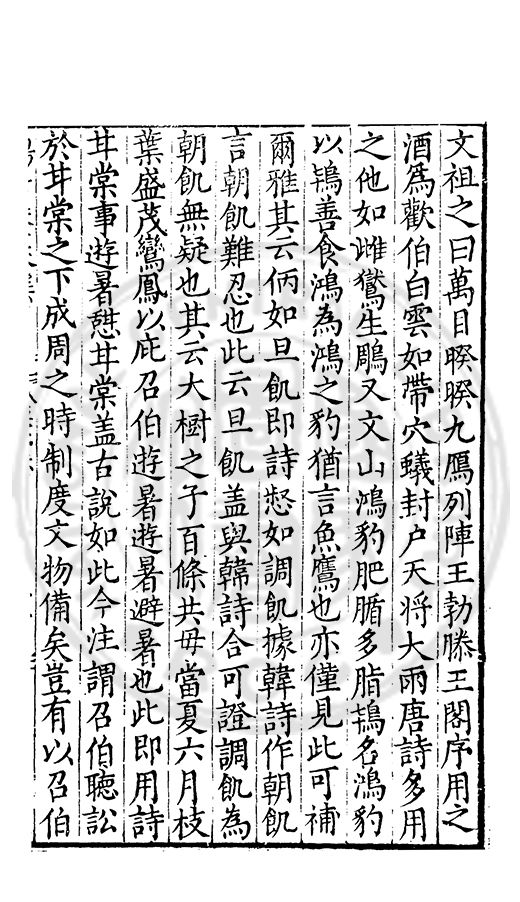 文祖之曰萬目睽睽九鴈列陣王勃滕王閣序用之
酒為歡伯白雲如帶穴蟻封户天将大雨唐詩多用
之他如雌鷩生鵰又文山鴻豹肥腯多脂鴇名鴻豹
以鴇善食鴻為鴻之豹猶言魚鷹也亦僅見此可補
爾雅其云㑂如旦飢即詩惄如調飢據韓詩作朝飢
言朝飢難忍也此云旦飢盖與韓詩合可證調飢為
朝飢無疑也其云大樹之子百條共母當夏六月枝
葉盛茂鸞鳳以庇召伯遊暑遊暑避暑也此即用詩
甘棠事遊暑憇甘棠盖古說如此今注謂召伯聴訟
於甘棠之下成周之時制度文物備矣豈有以召伯